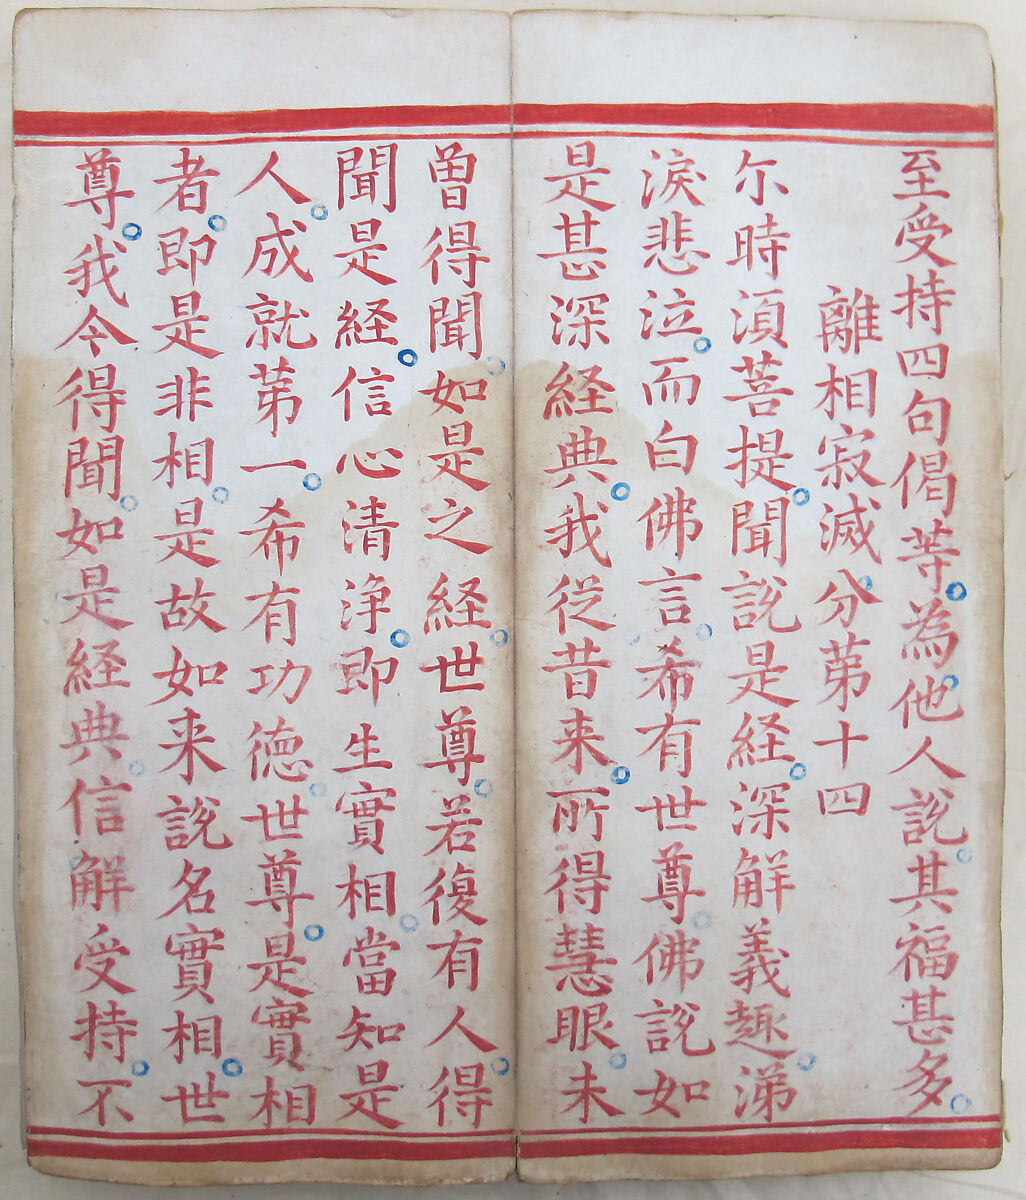 至受持四句偈等為他人說其福甚多
離相寂滅分第十四
尔時須菩提聞說是経深解義趣涕
淚悲泣而白佛言希有世尊佛說如
是甚深経典我從昔来所得慧眼未
曾得聞如是之経世尊若復有人得
聞是経信心清净即生實相當知是
人成就苐一希有功德世尊是實相
者即是非相是故如来說名實相世
尊我今得聞如是経典信解受持不